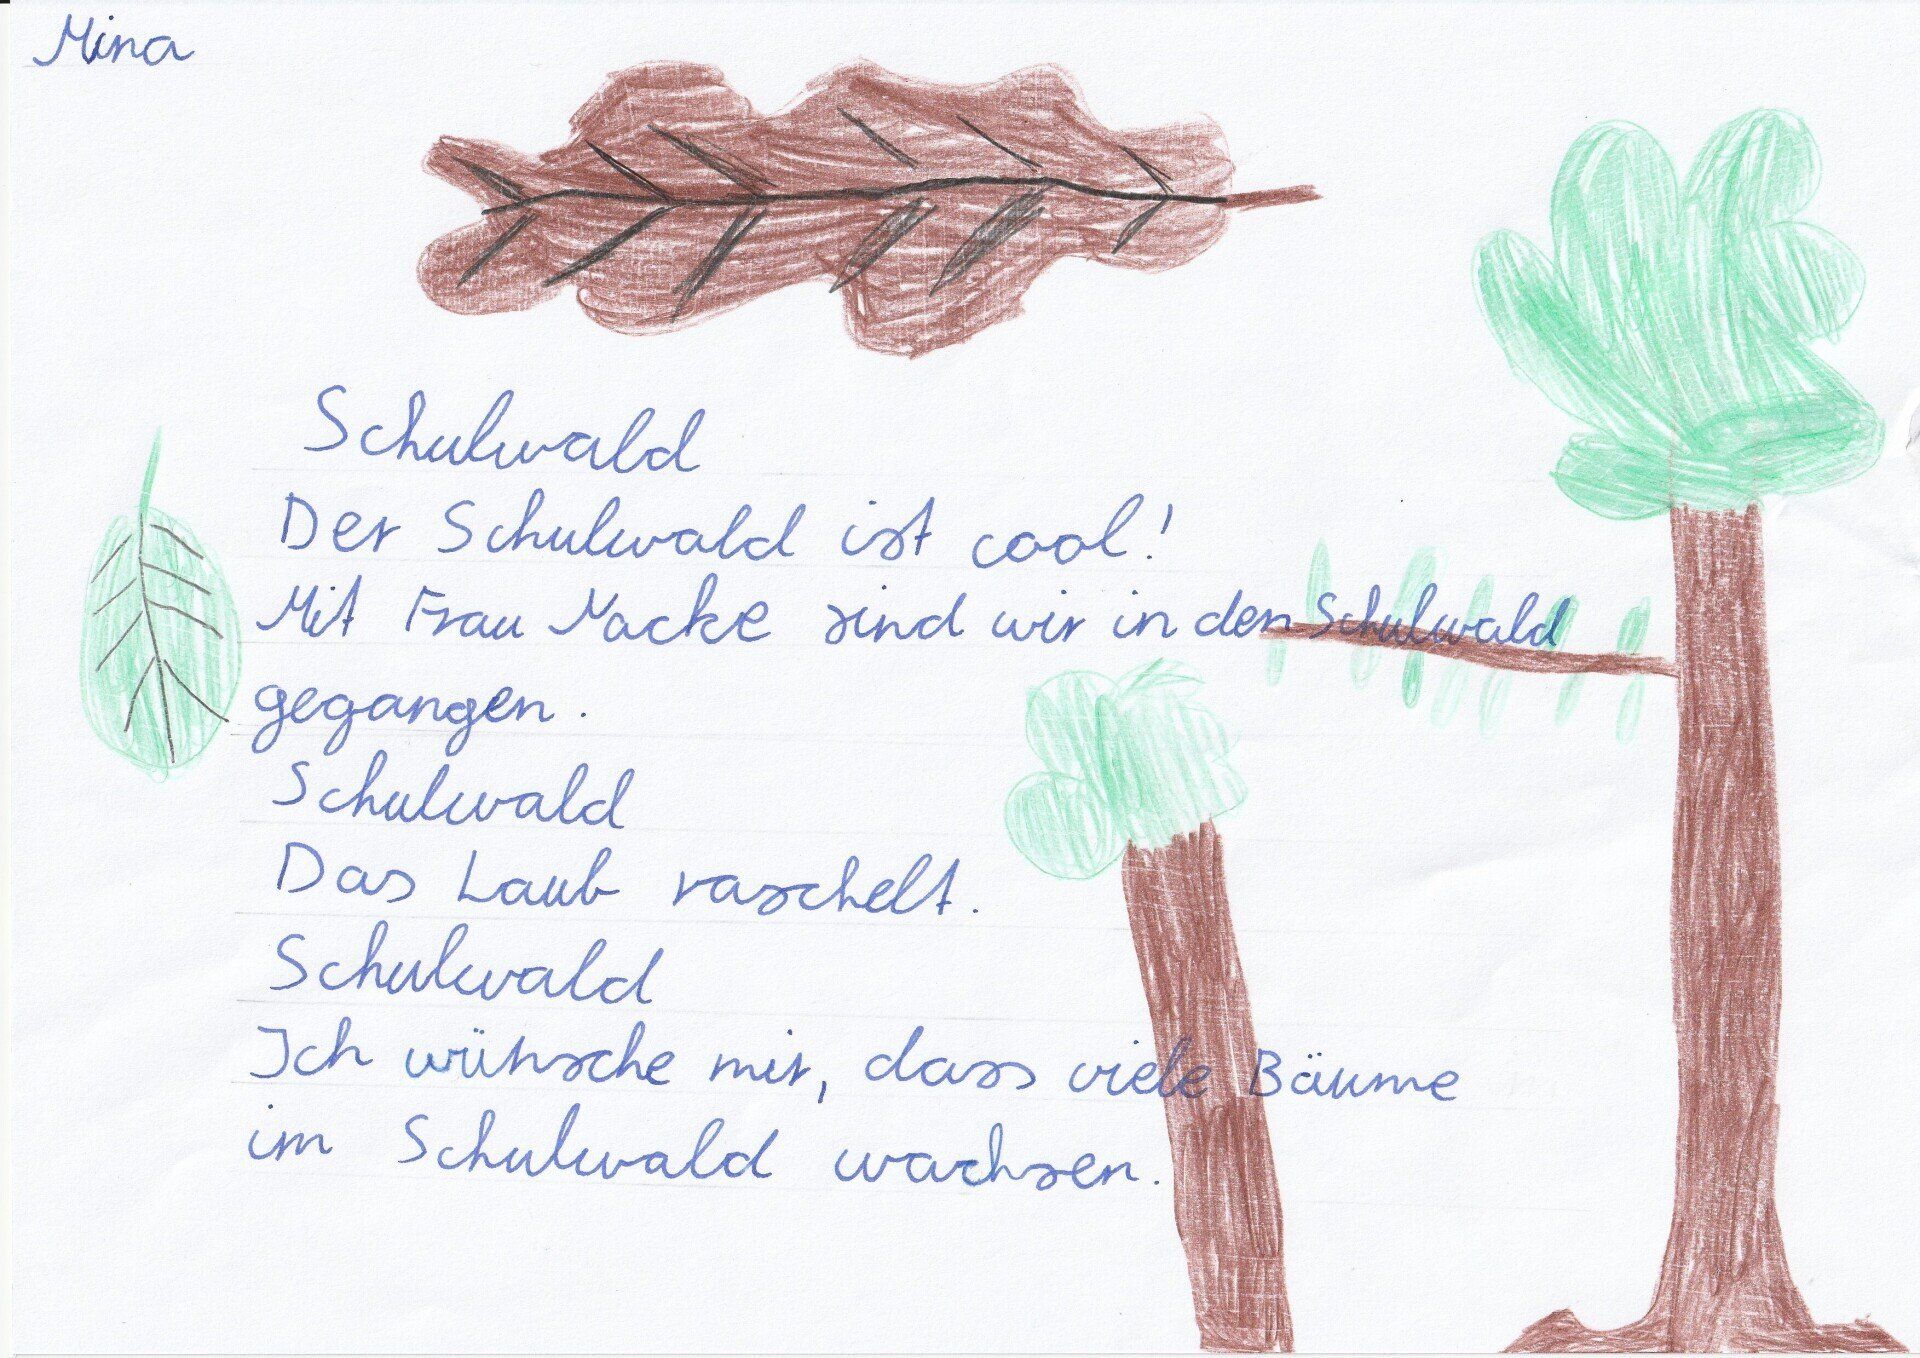 Mina
Schulwald
Der Schulwald ist cool!
Mit Frau Macke sind wir in den Schulwald
gegangen.
Schulwald
Das Laub raschelt.
Schulwald
Ich wünsche mir, dass viele Bäume
im Schulwald wachsen.